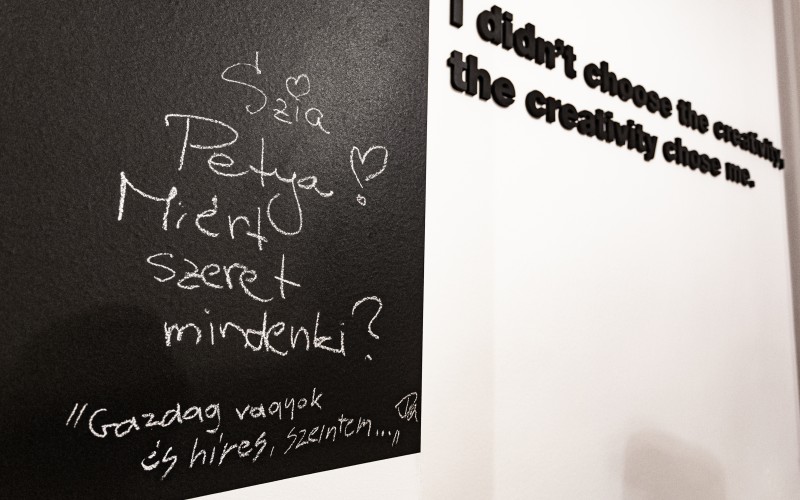 Szia
Petya!
Miért
szeret
mindenki?
"Gazdag vagyok
és híres, szeintem..."
I didn't choose the creativity,
the creativity chose me.